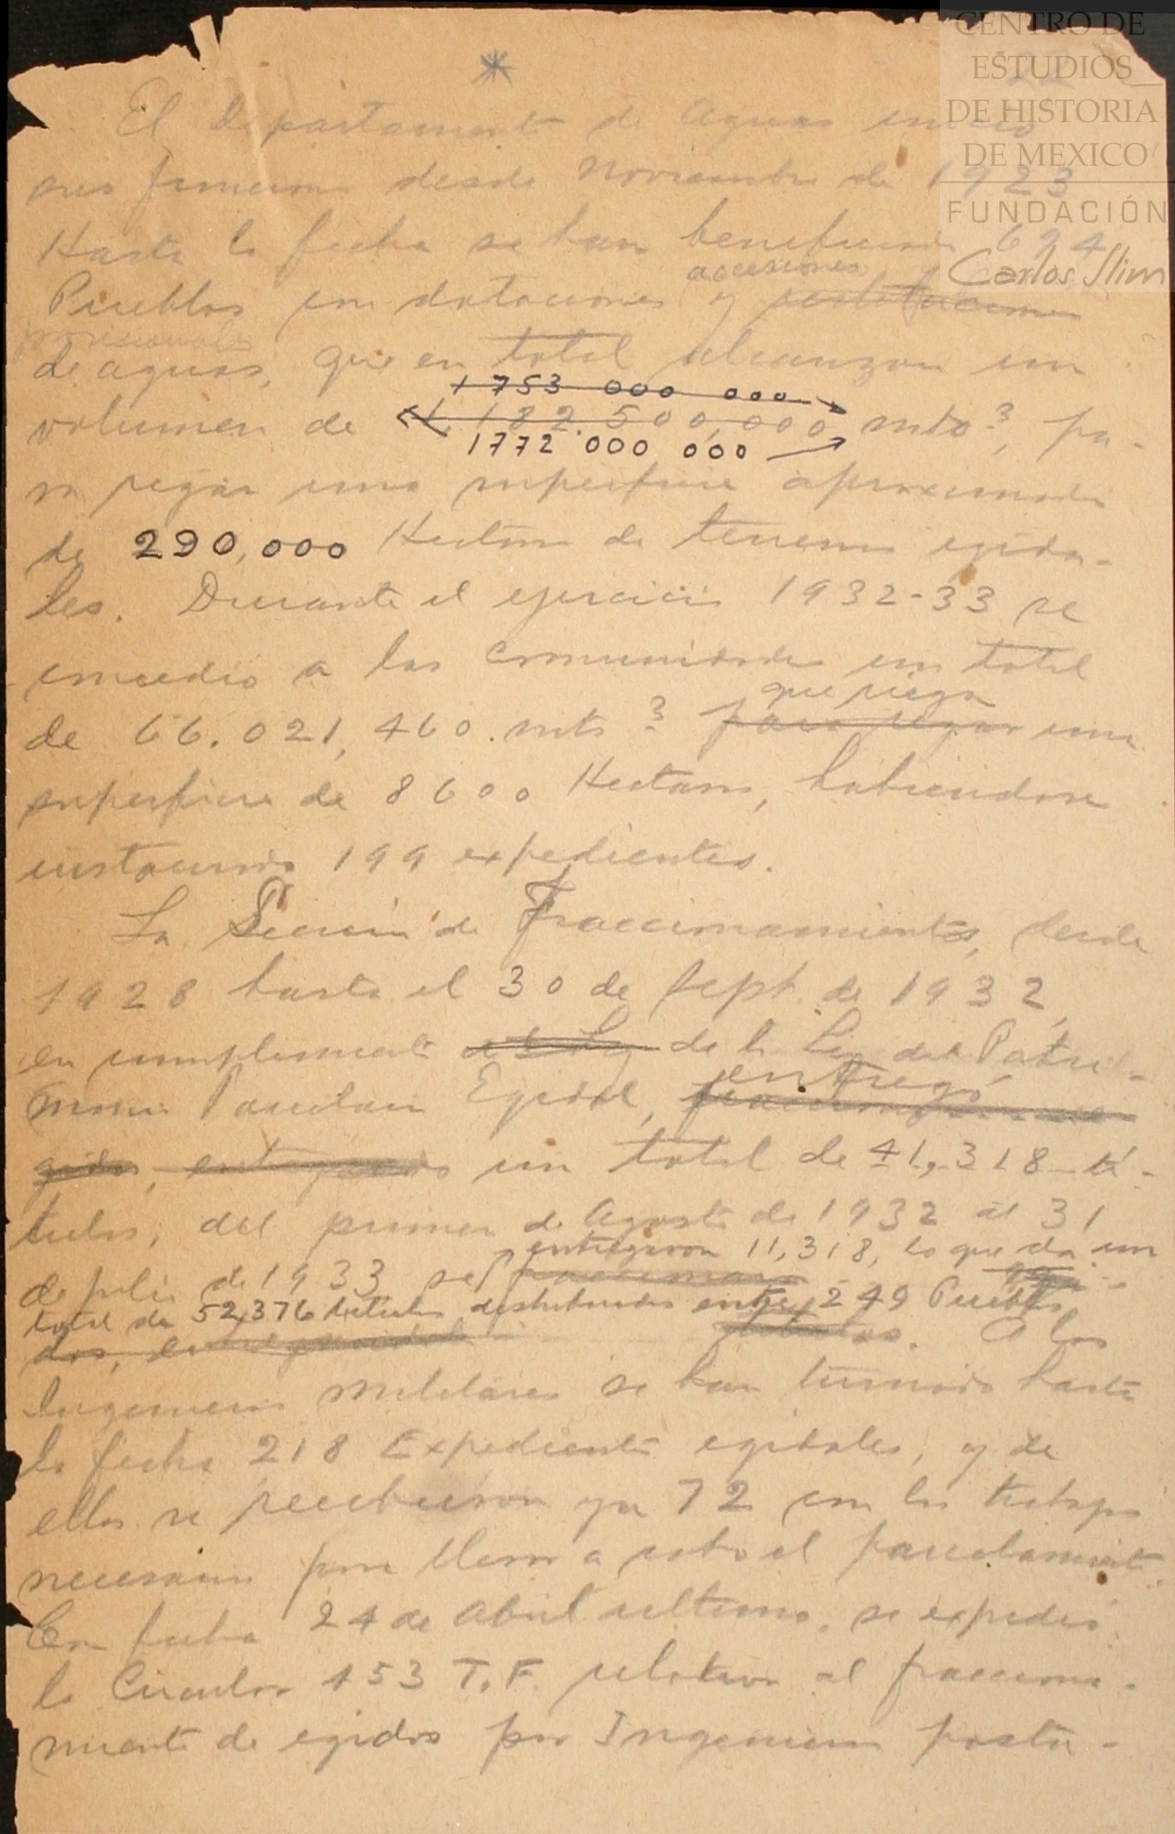 CENTRO DE
ESTUDIOS
DE HISTORIA
DE MEXICO
FUNDACIÓN
Carlos Slim
El Departamento de Aguas inicio
sus funciones desde Noviembre de 1923
Hasta la fecha se han beneficiado 694
accesiones
Pueblos con dotaciones y restituciones
provisionales
de aguas, que en total alcanzan un
1 753 000 000
volumen de 1,182.500,000 mts3, pa-
1772 000 000
ra regar una superficie aproximada
de 290,000 Hectáras de terrenos egida-
les. Durante el ejercicio 1932-33 se
concedió a las comunidades un total
que riega
de 66.021,460. mts3 para regar una
superficie de 8600 Hectaras, habiendose
instaurado 199 expedientes.
La Sección de Fraccionamientos, desde
1928 hasta el 30 de Sept. de 1932,
en cumplimiento de la Ley del Patri-
entregó
monio Parcelario Egidal,
un total de 41,318 tí-
tulos; del primero de Agosto de 1932 al 31
entregaron 11,318, lo que da un
de julio de 1933 se
total de 52,376 titulos distribuidos entre 249 Pueblos
A los
Ingenieros militares se han turnado hasta
la fecha 218 Expedientes egidales, y de
ellos se recibieron ya 72 con los trabajos
necesarios para llevar a cabo el parcelamiento.
Con fecha 24 de Abril ultimo, se expedió
la Circular 453 T.F. relativa al fracciona-
miento de egidos por Ingenieros postu-